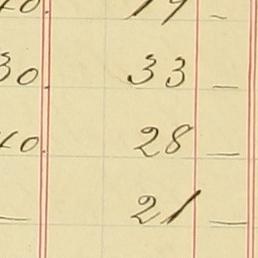 19 –
30. 33 –
40. 28 –
– 21 –